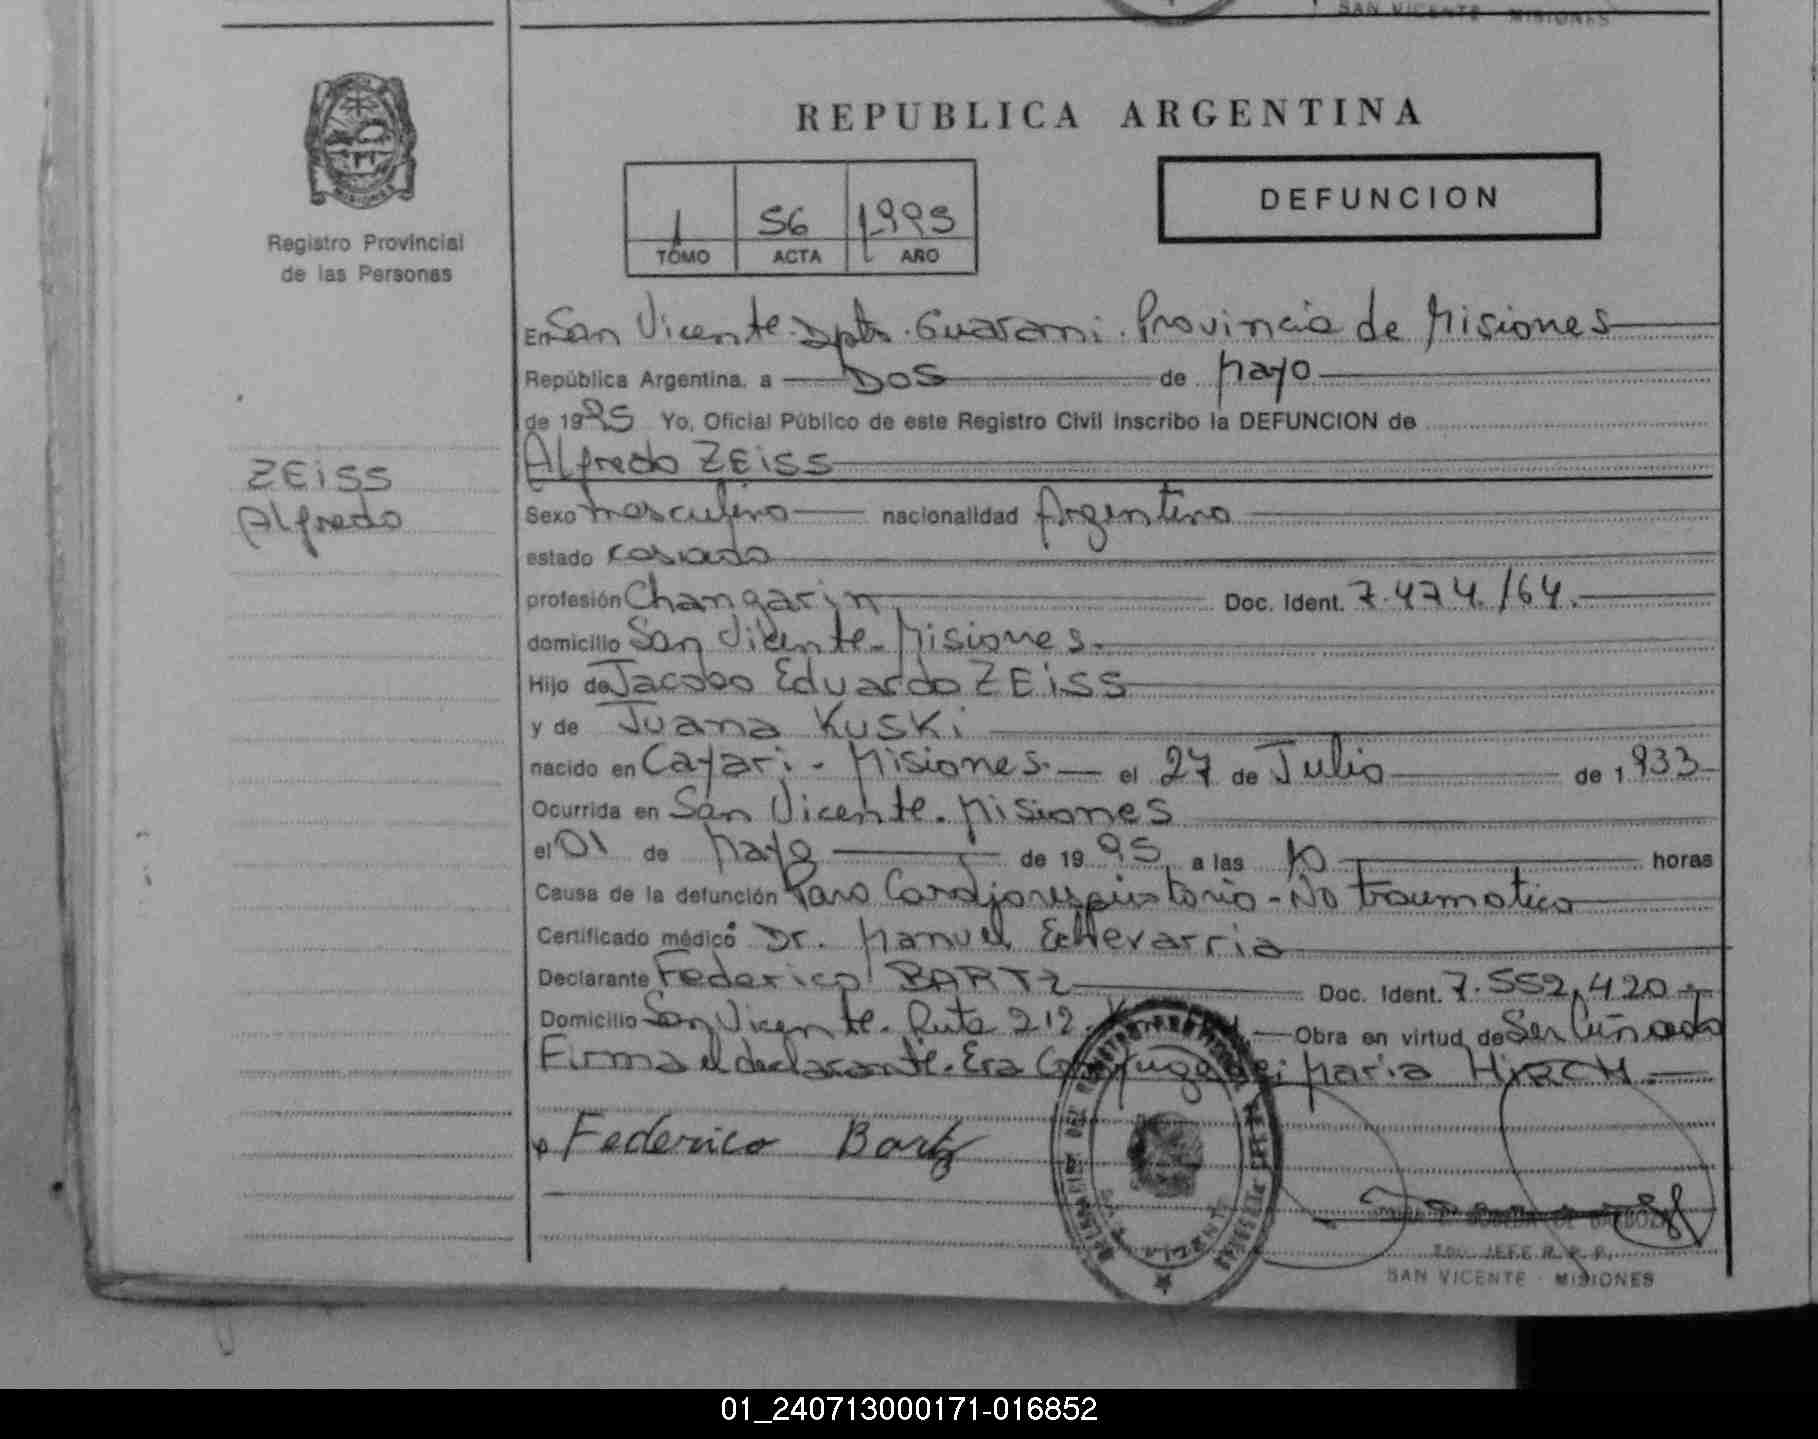 SAN VICENTE MISIONES
REPUBLICA ARGENTINA
MISIONES
Registro Provincial
de las Personas
1 56 1995
TOMO ACTA AÑO
DEFUNCION
En San Vicente. Dpto. Guarani. Provincia de Misiones
República Argentina, a Dos de Mayo
de 1995 Yo, Oficial Público de este Registro Civil inscribo la DEFUNCION de
Alfredo ZEiSS
ZEiSS
Alfredo
Sexo Masculino nacionalidad Argentino
estado casado
profesión Changarin Doc. Ident. 7.474./64.
domicilio San Vicente. Misiones.
Hijo de Jacobo Eduardo ZEiSS
y de Juana KusKi
nacido en Cayari - Misiones. el 27 de Julio de 1933
Ocurrida en San Vicente. Misiones
el 01 de Mayo de 1995 a las 10 horas
Causa de la defunción Paro Cardiorespiratorio - No traumatico
Certificado médico Dr. Manuel Echevarria
Declarante Federico BARTZ Doc. Ident. 7.552.420.
Domicilio San Vicente. Ruta 212. Obra en virtud de Ser Cuñado
Firma el declarante. Era Conyuge de: Maria HiRCH.
Federico Bartz
JEFE R. P. P.
SAN VICENTE - MISIONES
01_240713000171-016852